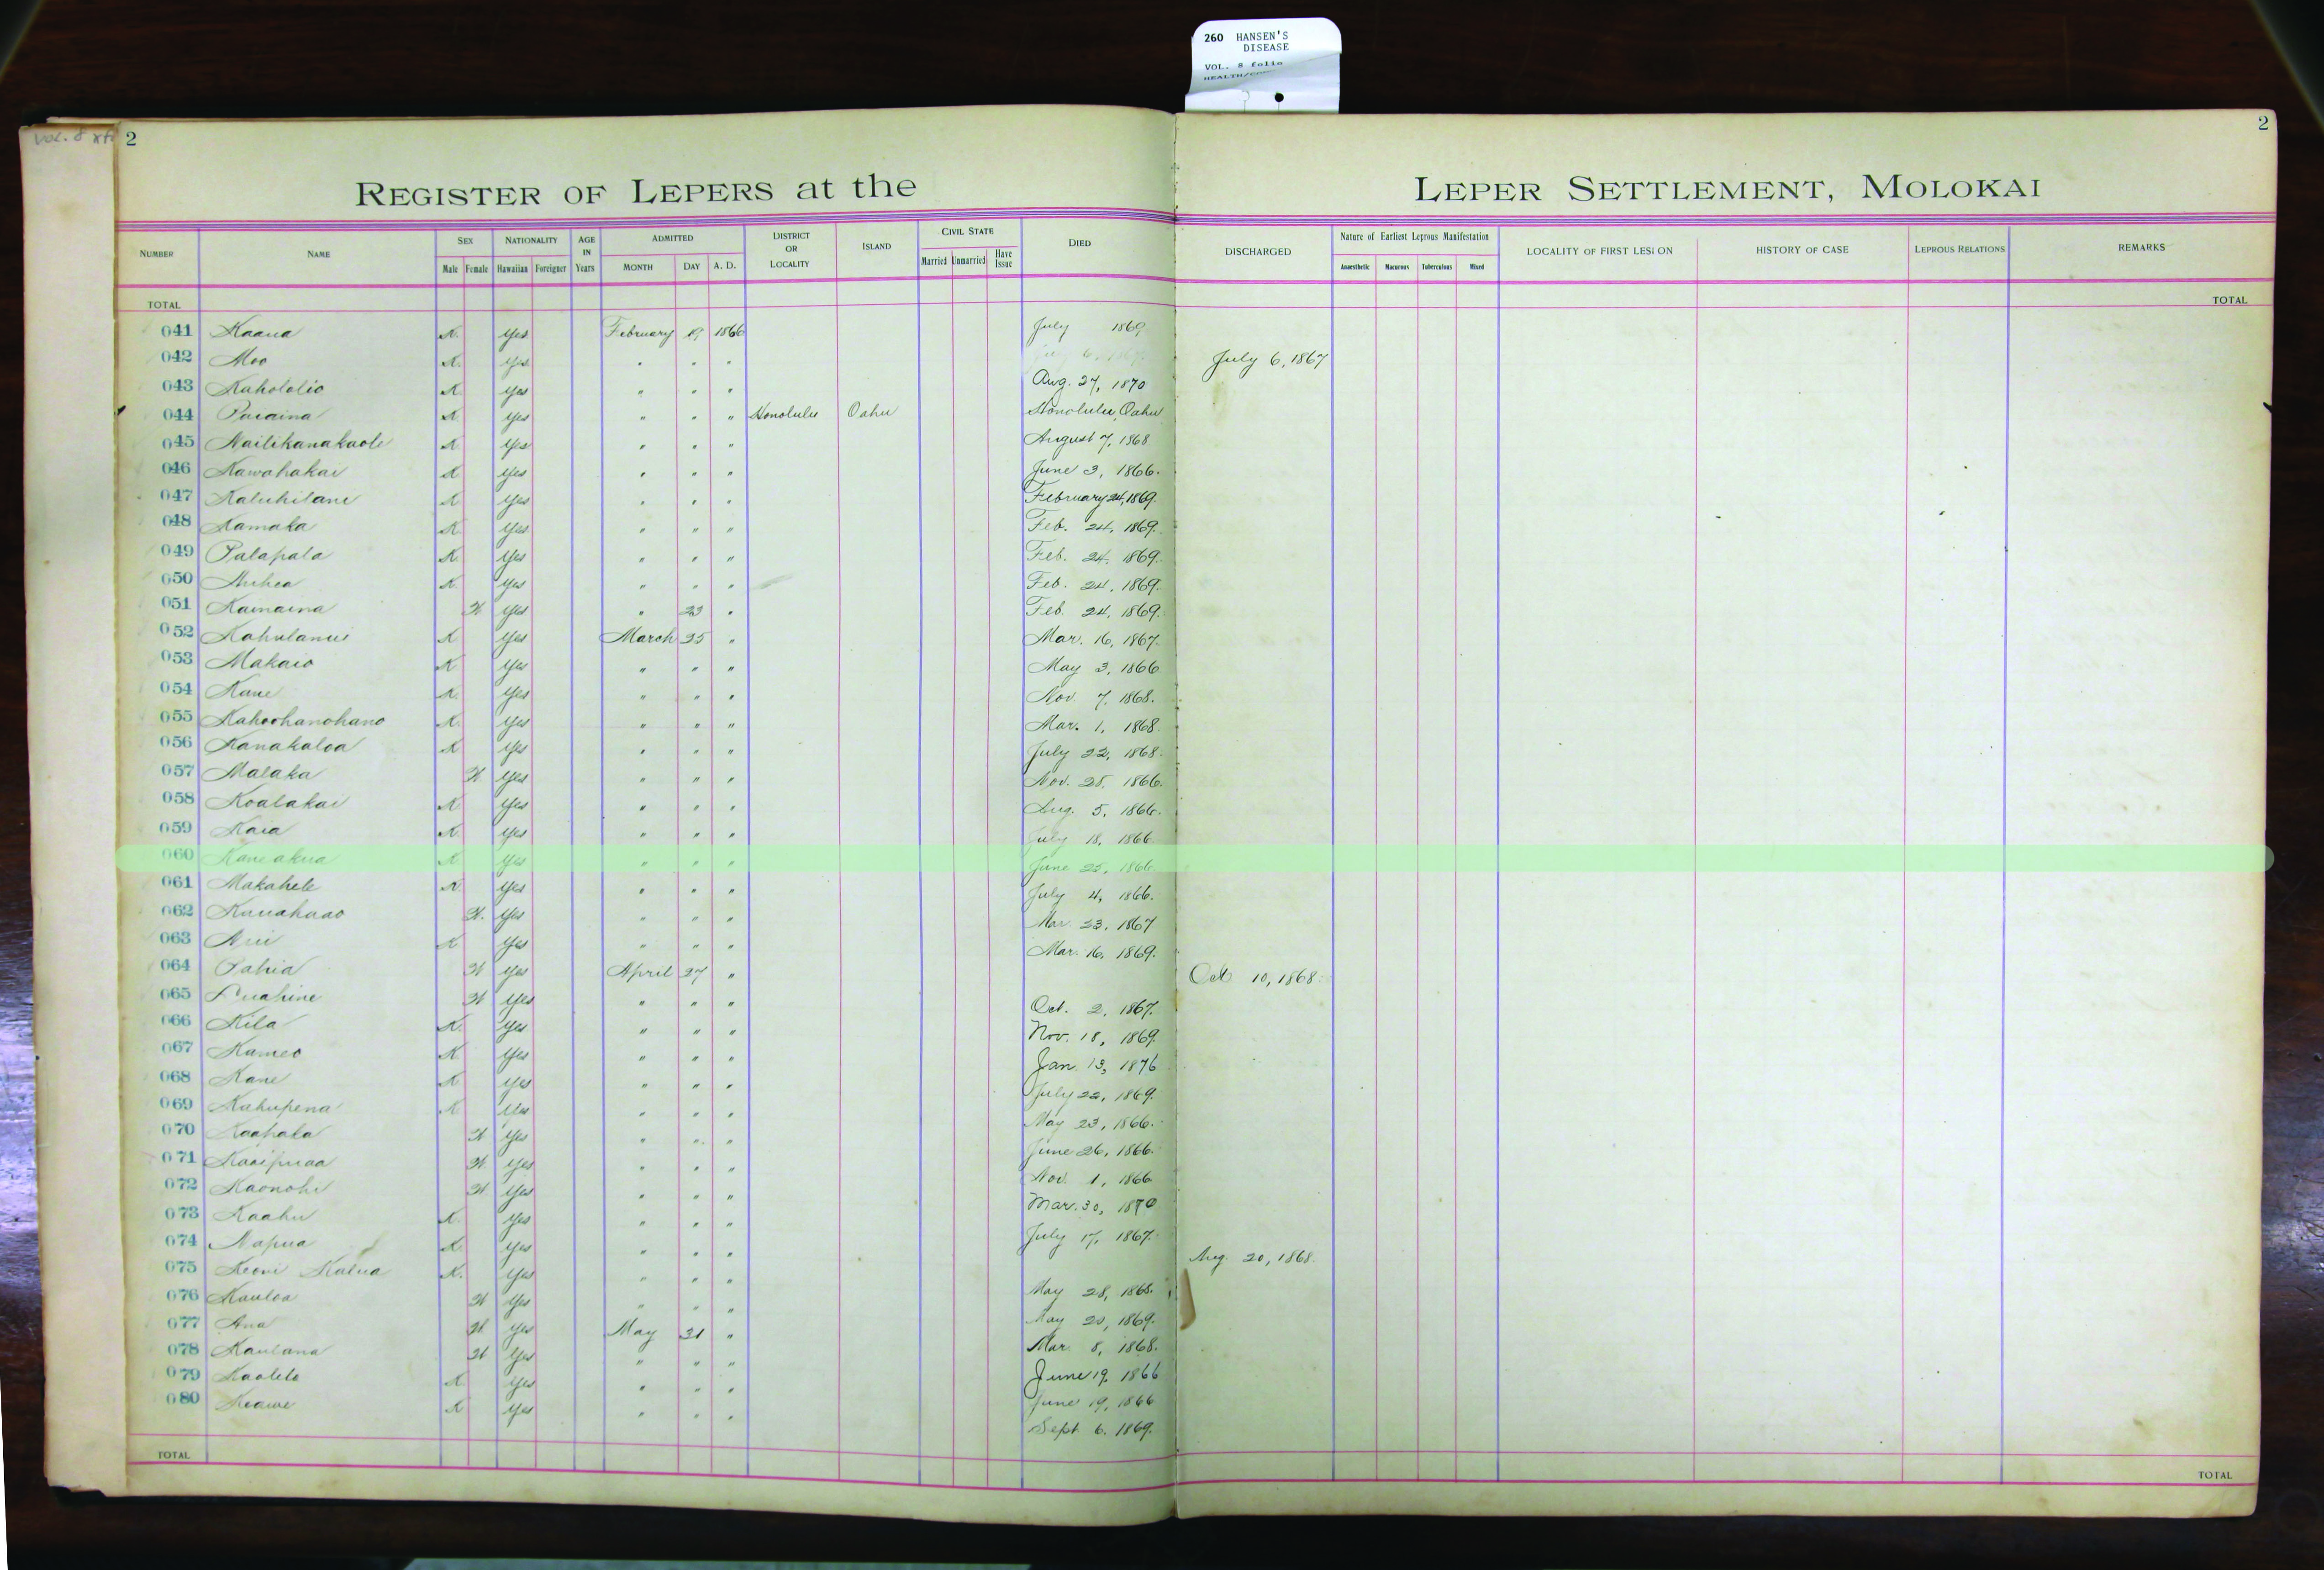 260 HANSEN'S
DISEASE
VOL. 8 folio
Vol. 8
2
2
REGISTER OF LEPERS at the LEPER SETTLEMENT, MOLOKAI
NUMBER NAME SEX Male Female NATIONALITY Hawaiian Foreigner AGE IN Years ADMITTED MONTH DAY A. D. DISTRICT OR LOCALITY ISLAND CIVIL STATE Married Unmarried Have Issue DIED DISCHARGED Nature of Earliest Leprous Manifestation Anaesthetic Macurous Tuberculous Mixed LOCALITY OF FIRST LESION HISTORY OF CASE LEPROUS RELATIONS REMARKS
TOTAL TOTAL
041 Kaaua K. Yes February 19 1866 July 1869
042 Moo K. Yes " " " July 6, 1867
043 Kahololio K Yes " " " Aug. 27, 1870
044 K Yes " " " Honolulu Oahu Honolulu, Oahu
045 Nailikanakaole K Yes " " " August 7, 1868
046 Kawahakai K Yes " " " June 3, 1866.
047 Kaluhilani K Yes " " " February 24, 1869.
048 Kamaka K Yes " " " Feb. 24, 1869.
049 Palapala K. Yes " " " Feb. 24, 1869.
050 K. Yes " " " Feb. 24, 1869.
051 Kamaina W Yes " 23 " Feb. 24, 1869.
052 K Yes March 25 " Mar. 16, 1867.
053 Makaio K Yes " " " May 3, 1866
054 Kane K. Yes " " " Nov 7, 1868.
055 Kahoohanohano K. Yes " " " Mar. 1, 1868
056 Kanakaloa K Yes " " " July 22, 1868.
057 Malaka W Yes " " " Nov. 28, 1866.
058 Koalakai K Yes " " " Aug. 5, 1866.
059 Kaia K. Yes " " " July 18, 1866
060 Kaneakua K Yes " " " June 25, 1866
061 Makahele K. Yes " " " July 4, 1866.
062 W. Yes " " " Mar 23, 1867
063 K Yes " " " Mar. 16, 1869.
064 Pahia W Yes April 27 " Oct 10, 1868.
065 Puahine W Yes " " " Oct. 2, 1867.
066 Kila K. Yes " " " Nov. 18, 1869.
067 Kameo K Yes " " " Jan 13, 1876
068 Kane K Yes " " " July 22, 1869.
069 Kahupena K Yes " " " May 23, 1866.
070 Kaahala W Yes " " " June 26, 1866.
071 Kaaipuaa W. Yes " " " Nov. 1, 1866
072 Kaonohi W Yes " " " Mar. 30, 1870
073 Kaahu K. Yes " " " July 17, 1867.
074 Napua K. Yes " " " Aug. 20, 1868.
075 Keoni Kalua K. Yes " " " May 28, 1868.
076 Kauloa W Yes " " " May 20, 1869.
077 Ana W. Yes May 31 " Mar. 8, 1868.
078 Kaulana W Yes " " " June 19, 1866
079 Kaolelo K Yes " " " June 19, 1866
080 Keawe K Yes " " " Sept 6. 1869.
TOTAL TOTAL